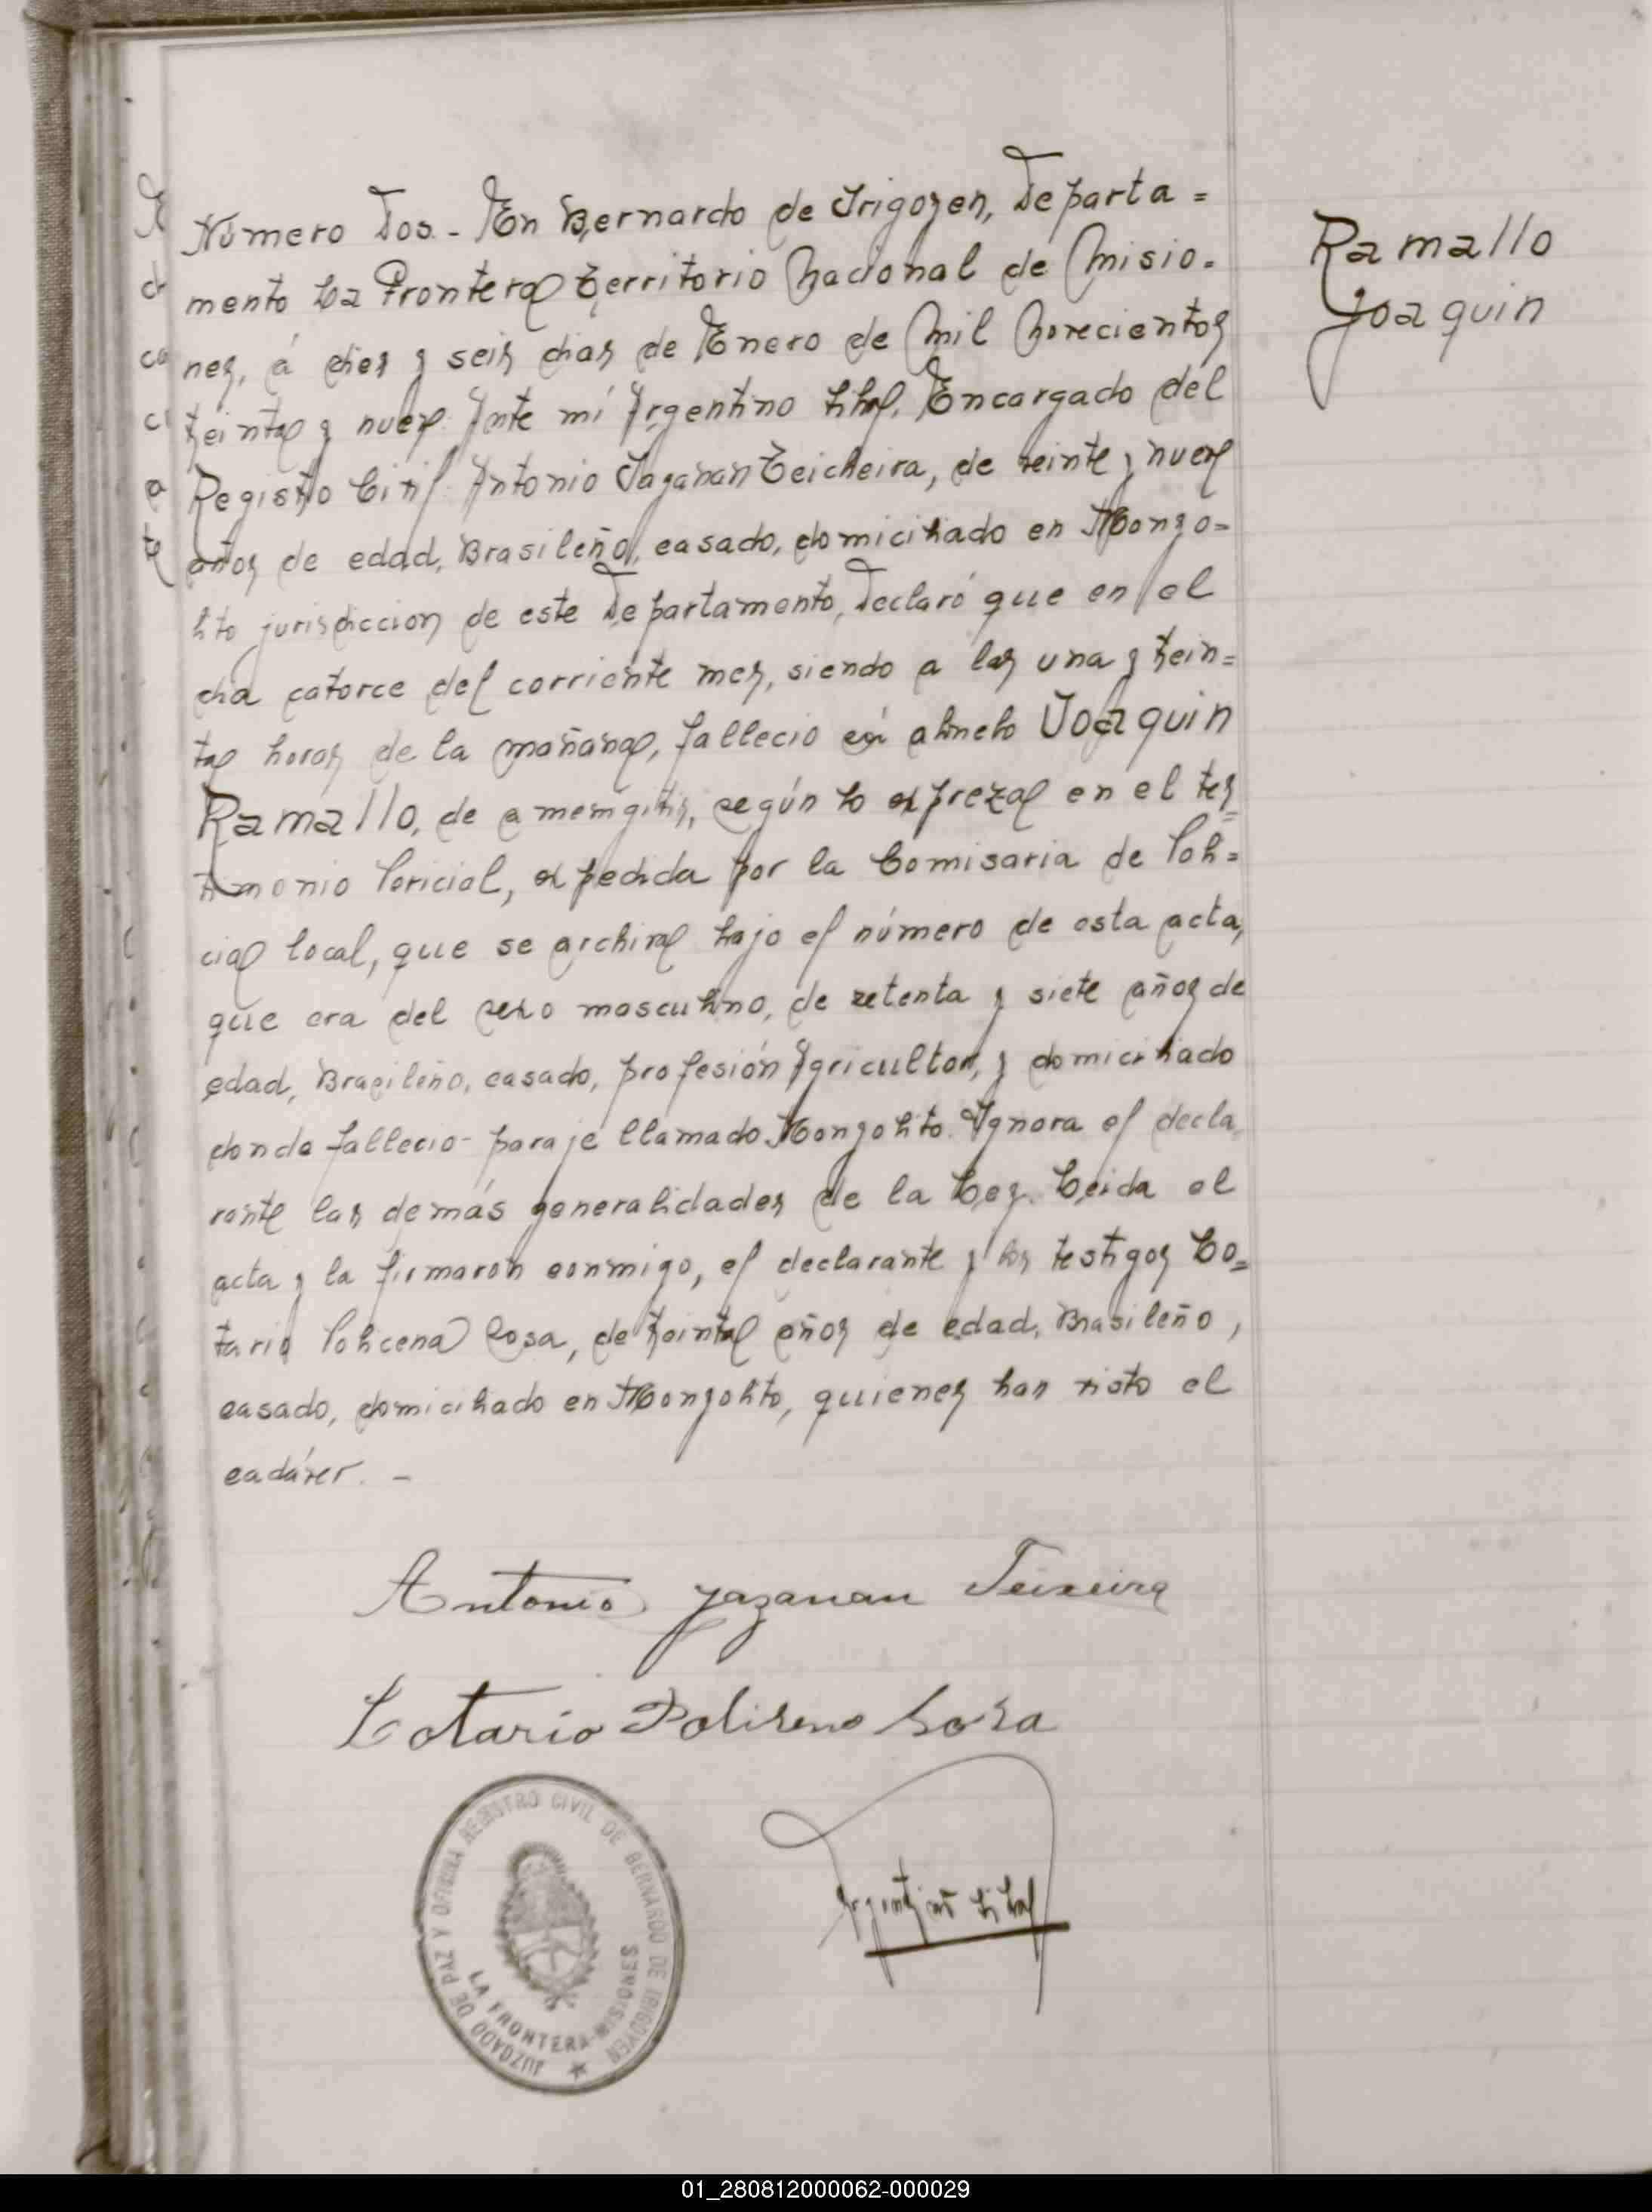 Número Dos.- En Bernardo de Irigoyen, Departa=
mento La Frontera Territorio Nacional de Misio=
nes, á dies y seis dias de Enero de Mil Novecientos
treinta y nueve. Ante mí Argentino Encargado del
Registro Civil: Antonio Jaganan Teicheira, de veinte y nueve
años de edad, Brasileño, casado, domiciliado en Monyo=
lito jurisdiccion de este Departamento, Declaró que en el
dia catorce del corriente mes, siendo a las una y trein=
ta horas de la mañana, fallecio abuelo Joaquin
Ramallo, de a meningitis, según lo expreza en el tes=
timonio Pericial, expedida por la Comisaria de Poli=
cia local, que se archiva bajo el número de esta acta,
que era del sexo masculino, de setenta y siete años de
edad, Brasileño, casado, profesión Agricultor, y domiciliado
donde fallecio- paraje llamado Monyolito. Ignora el decla
rante las demás generalidades de la Ley. Leida el
acta y la firmaron conmigo, el declarante y los testigos Lo=
tario Policena Rosa, de treinta años de edad, Brasileño,
casado, domiciliado en Monyolito, quienes han visto el
cadáver. -
Ramallo
Joaquin
Antonio Jaganan Teixeira
Lotario Poliseno Rosa
JUZGADO DE PAZ Y OFICINA REGISTRO CIVIL DE BERNARDO DE IRIGOYEN
LA FRONTERA-MISIONES
01_280812000062-000029